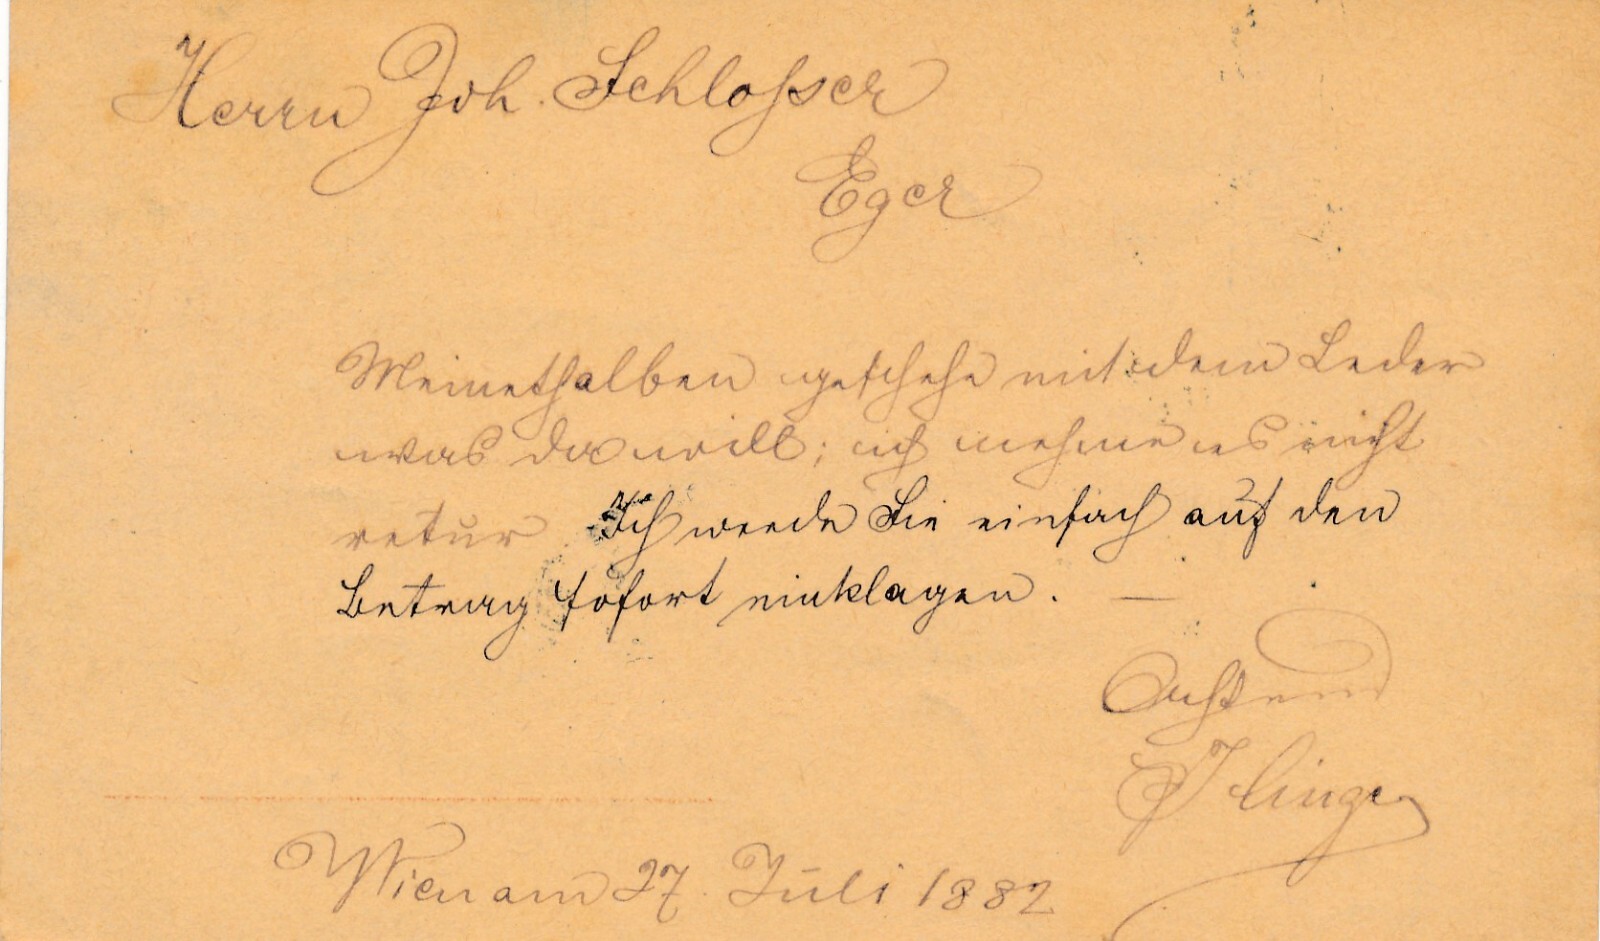 Herrn Joh. Schlosser
Eger
Meinethalben geschehe mit dem Leder
was da will; ich nehme es nicht
retur Ich werde Sie einfach auf den
Betrag sofort einklagen. —
Achtend
Wien am 27. Juli 1882